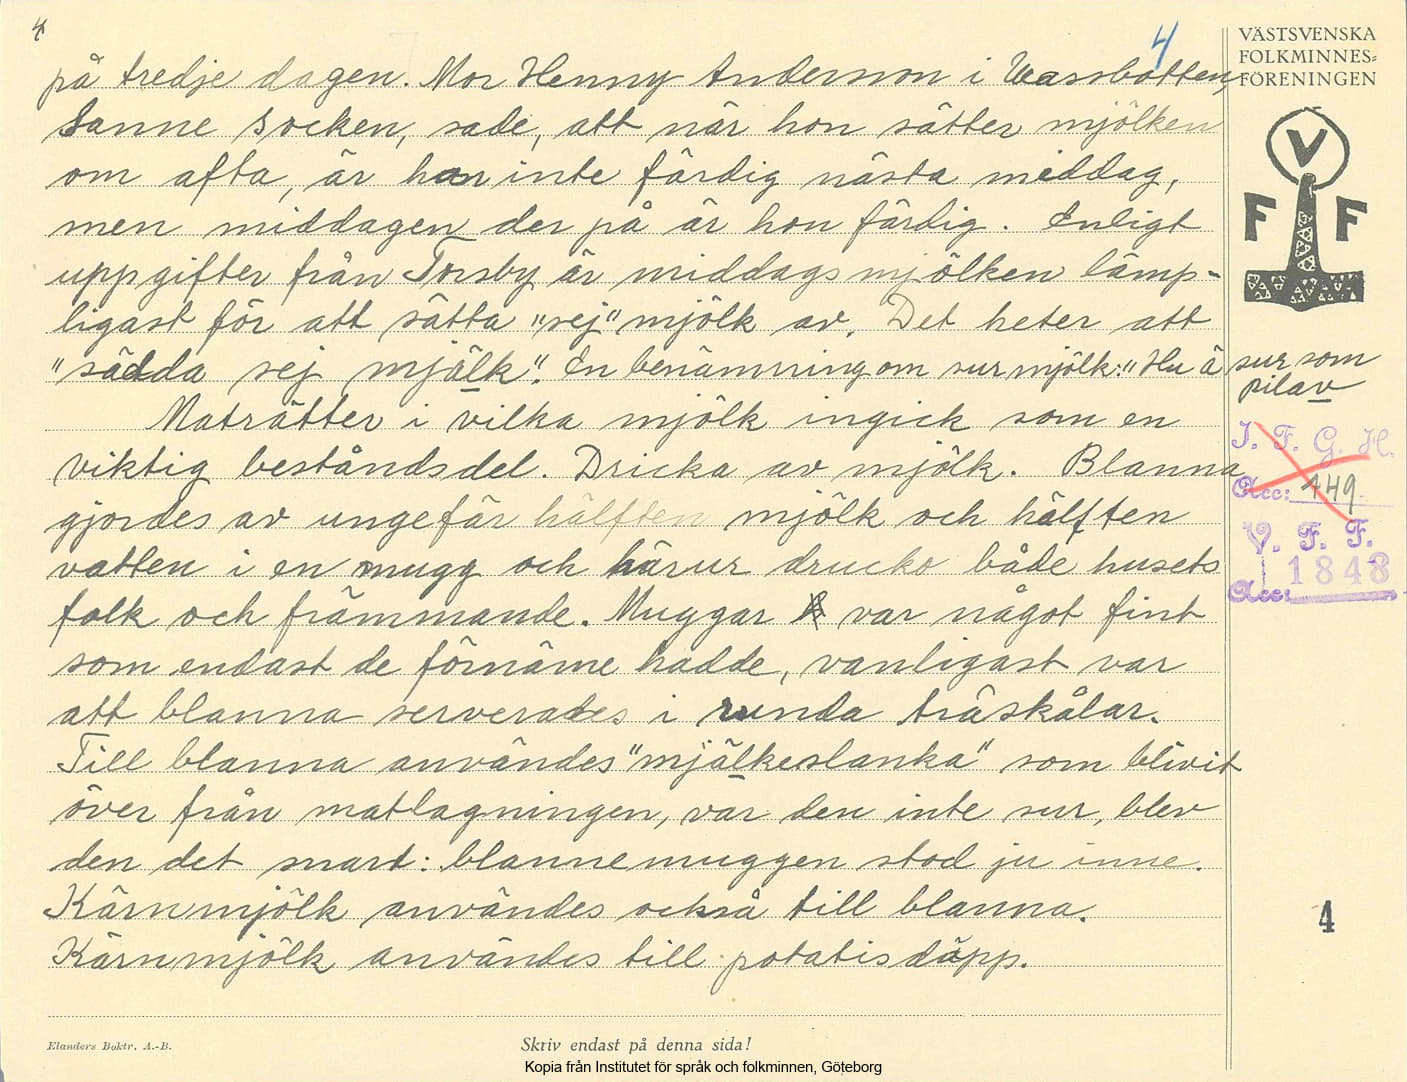 4
4
VÄSTSVENSKA
FOLKMINNES-
FÖRENINGEN
V
F F
på tredje dagen. Mor Henny Anderson i Vassbotten,
Sanne socken, sade, att när hon sätter mjölken
om afta, är hon inte färdig nästa middag,
men middagen der på är hon färdig. Enligt
uppgifter från Torsby är middagsmjölken lämp-
ligast för att sätta "sej" mjölk av. Det heter att
"sädda sej mjälk". En benämning om sur mjölk: "Hu ä sur som
pilav
Maträtter i vilka mjölk ingick som en
viktig beståndsdel. Dricka av mjölk. Blanna
gjordes av ungefär hälften mjölk och hälften
vatten i en mugg och härur drucko både husets
folk och främmande. Muggar var något fint
som endast de förnäme hadde, vanligast var
att blanna serverades i runda träskålar.
Till blanna användes "mjälkeslanka" som blivit
över från matlagningen, var den inte sur, blev
den det snart: blannemuggen stod ju inne.
Kärnmjölk användes också till blanna.
Kärnmjölk användes till potatisdäpp.
I. F. G. H.
Acc: 449
V. F. F.
Acc: 1848
4
Elanders Boktr. A.-B.
Skriv endast på denna sida!
Kopia från Institutet för språk och folkminnen, Göteborg